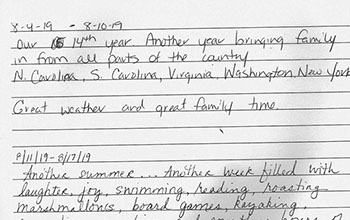 8-4-19 - 8-10-19
Our 14th year Another year bringing family
in from all parts of the country
N. Carolina, S. Carolina, Virginia, Washington, New York
Great weather and great family time.
8/11/19-8/17/19
Another summer... Another week filled with
laughter, joy, swimming, reading, roasting
marshmallows, board games, kayaking,